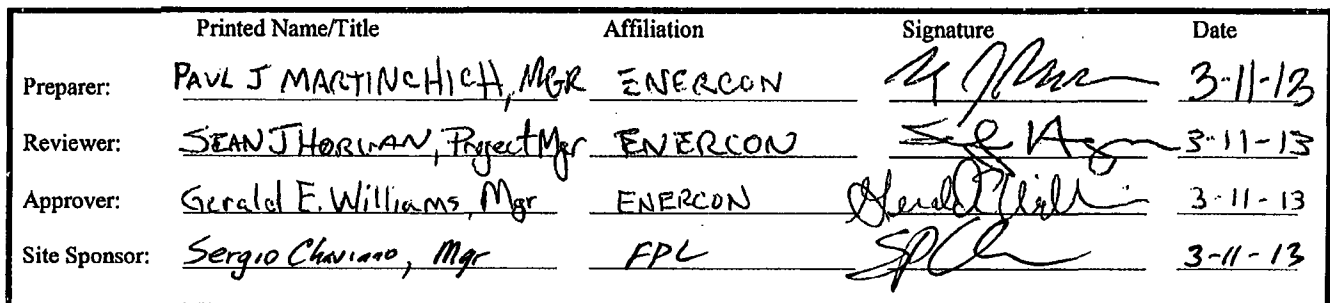 Printed Name/Title Affiliation Signature Date
Preparer: PAUL J MARTINCHICH, MGR ENERCON 3-11-13
Reviewer: SEAN J HORGAN, Project Mgr ENERCON 3-11-13
Approver: Gerald E. Williams, Mgr ENERCON 3-11-13
Site Sponsor: Sergio Chaviano, Mgr FPL 3-11-13